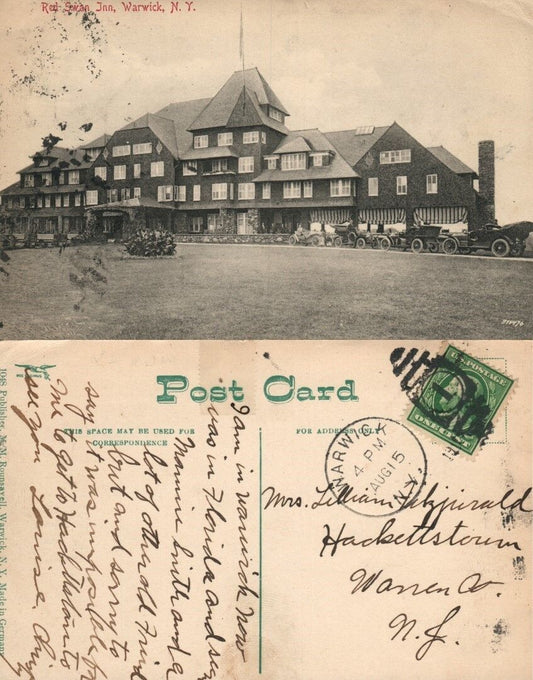 Red Swan Inn, Warwick, N. Y.
Post Card
THIS SPACE MAY BE USED FOR
CORRESPONDENCE
FOR ADDRESS ONLY
U.S. POSTAGE
ONE CENT
WARWICK
4 PM
AUG 15
N.Y.
Mrs. Lillian Fitzgerald
Hackettstown
Warren Co.
N. J.
I am in Warwick Now
was in Florida and
Mannie Smith and a
lot of other old
but and sorry to
say it was impossible for
me to get to Hackettstown to
see you Louise
Publisher, M. N. Warwick, N. Y. Made in Germany